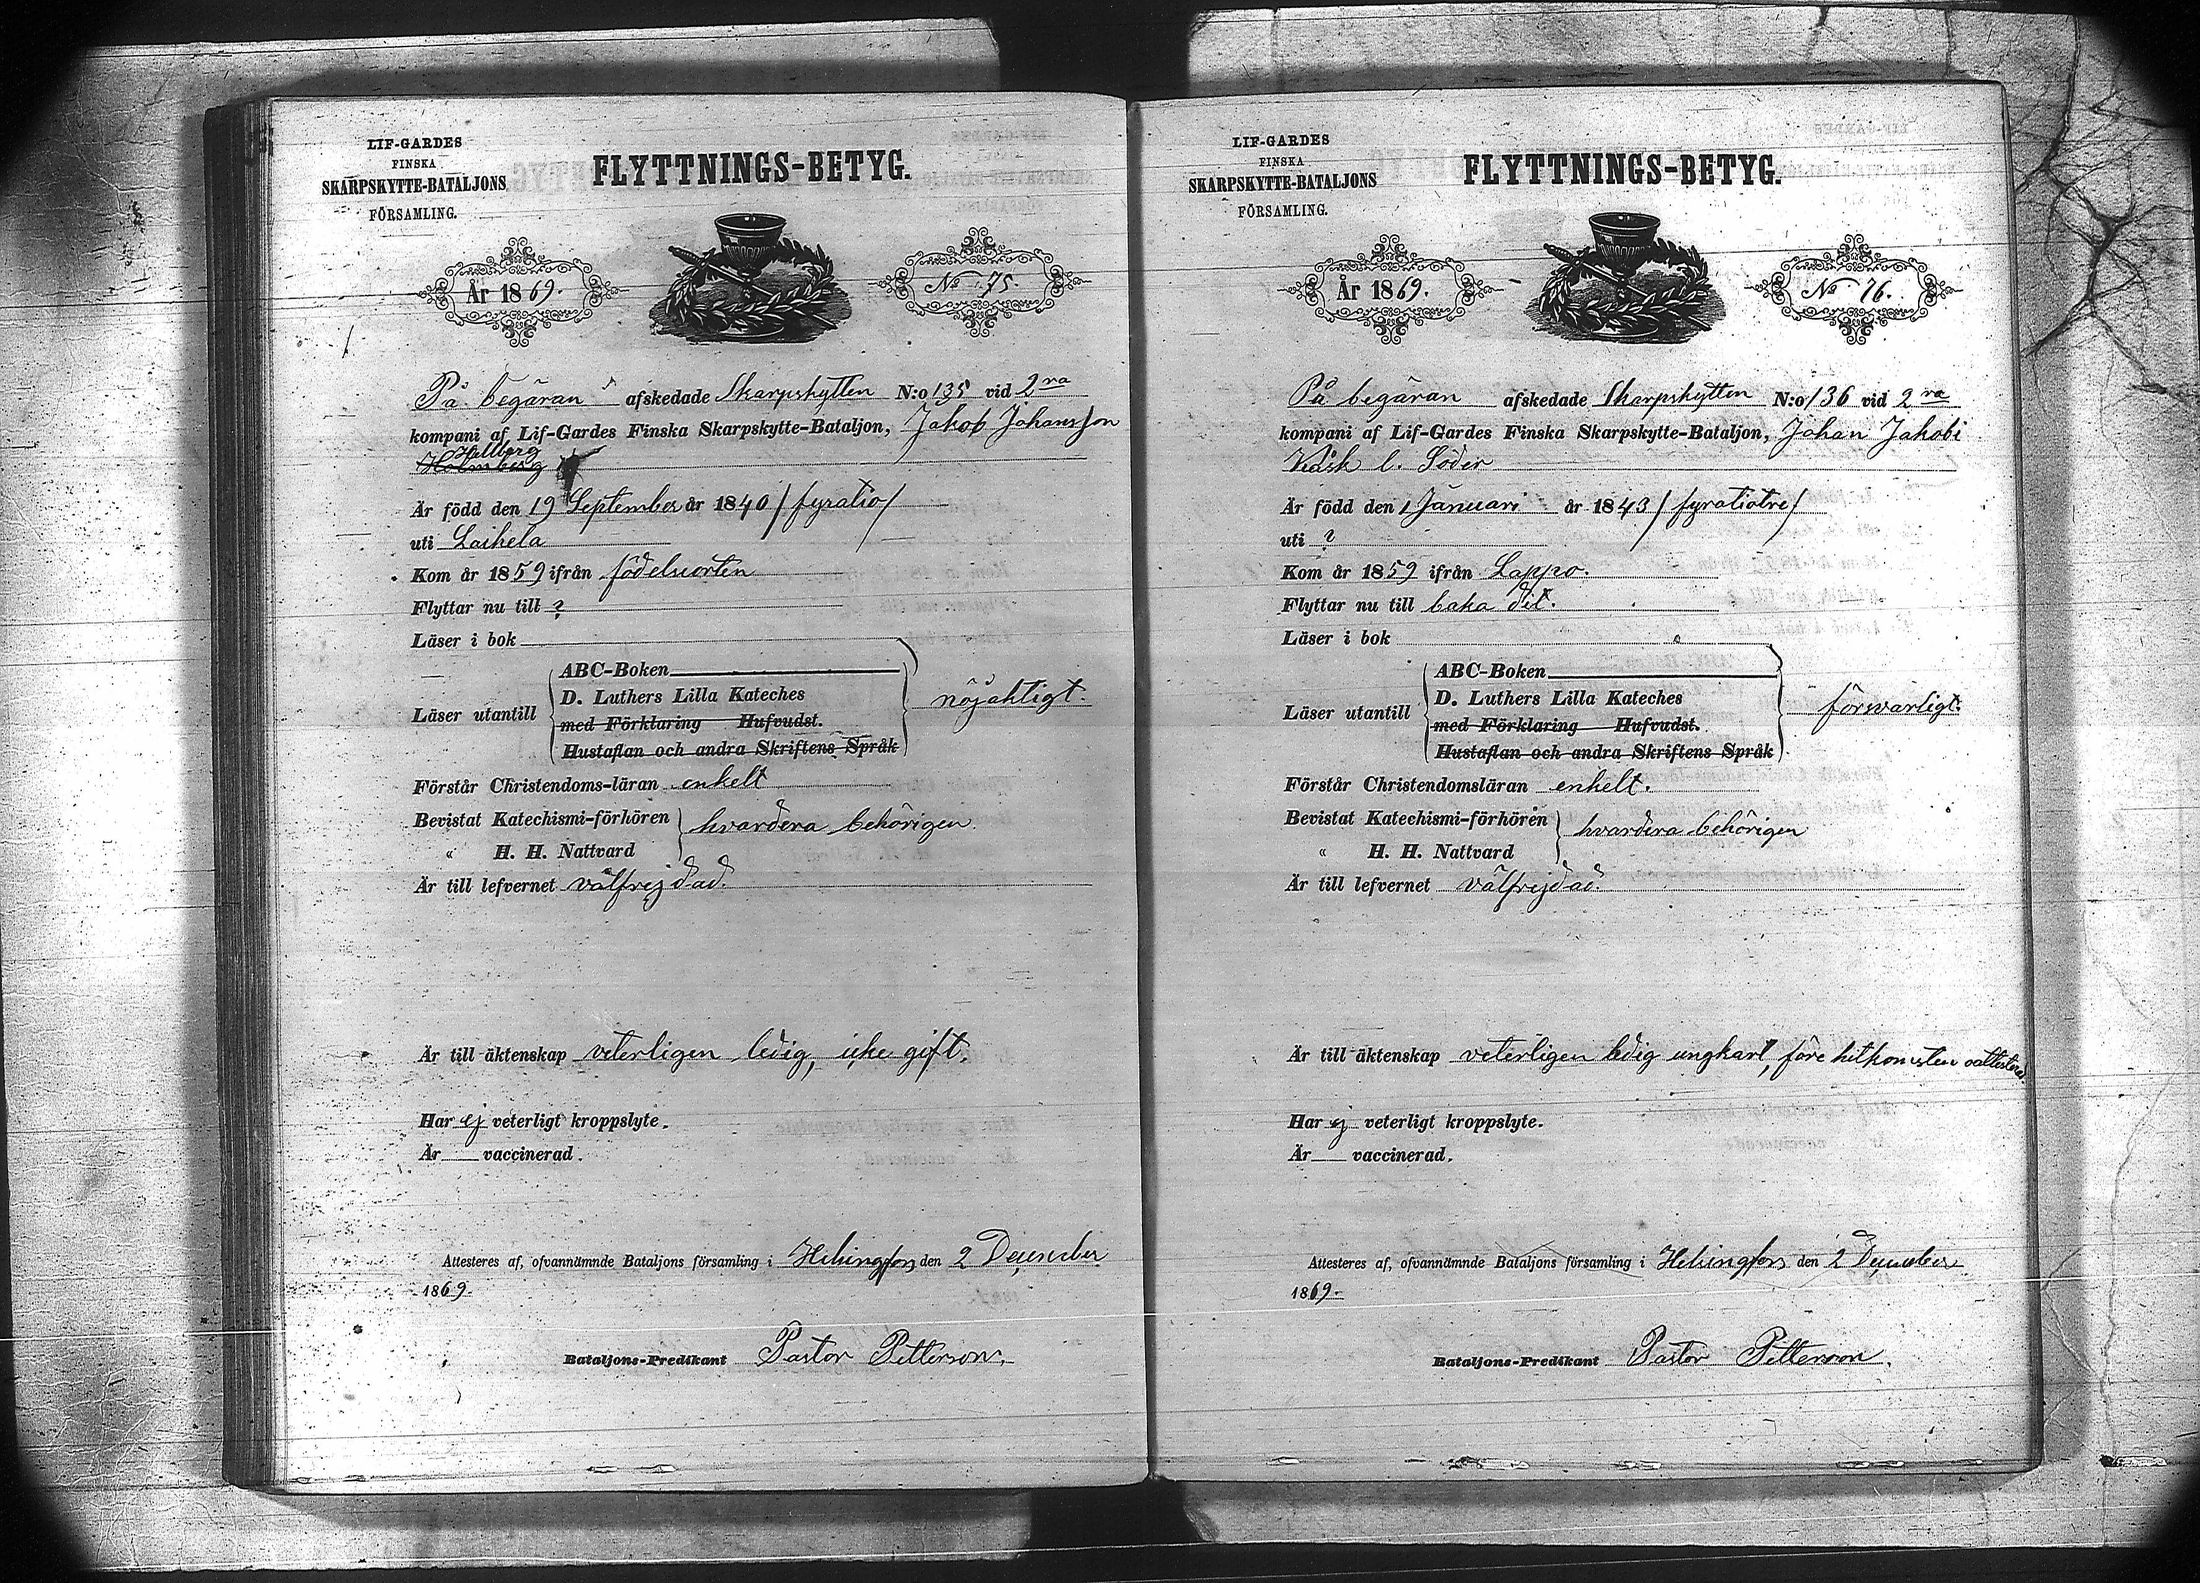 LIF-GARDES
FINSKA
SKARPSKYTTE-BATALJONS
FÖRSAMLING.
FLYTTNINGS-BETYG.
År 1869.
No 75.
På begäran afskedade Skarpskytten N:o 135 vid 2ra
kompani af Lif-Gardes Finska Skarpskytte-Bataljon, Jakob Johansson
Hellberg
Holmberg
Är född den 19 September år 1840 / fyratio /
uti Laihela
Kom år 1859 ifrån födelseorten
Flyttar nu till ?
Läser i bok
Läser utantill
ABC-Boken
D. Luthers Lilla Kateches
med Förklaring Hufvudst.
Hustaflan och andra Skriftens Språk
nöjaktigt.
Förstår Christendoms-läran enkelt
Bevistat Katechismi-förhören
" H. H. Nattvard
hvardera behörigen.
Är till lefvernet välfrejdad.
Är till äktenskap veterligen ledig, icke gift.
Har ej veterligt kroppslyte.
Är vaccinerad.
Attesteres af, ofvannämnde Bataljons församling i Helsingfors den 2 December
1869.
Bataljons-Predikant Pastor Petterson.
LIF-GARDES
FINSKA
SKARPSKYTTE-BATALJONS
FÖRSAMLING.
FLYTTNINGS-BETYG.
År 1869.
No 76.
På begäran afskedade Skarpskytten N:o 136 vid 2ra
kompani af Lif-Gardes Finska Skarpskytte-Bataljon, Johan Jakobi
l. Söder
Är född den 1 Januari år 1843 / fyratiotre /
uti ?
Kom år 1859 ifrån Lappo.
Flyttar nu till baka dit.
Läser i bok
Läser utantill
ABC-Boken
D. Luthers Lilla Kateches
med Förklaring Hufvudst.
Hustaflan och andra Skriftens Språk
försvarligt.
Förstår Christendomsläran enkelt.
Bevistat Katechismi-förhören
" H. H. Nattvard
hvardera behörigen
Är till lefvernet välfrejdad.
Är till äktenskap veterligen ledig ungkarl, före hitkomsten
Har ej veterligt kroppslyte.
Är vaccinerad.
Attesteres af, ofvannämnde Bataljons församling i Helsingfors den 2 December
1869.
Bataljons-Predikant Pastor Petterson.